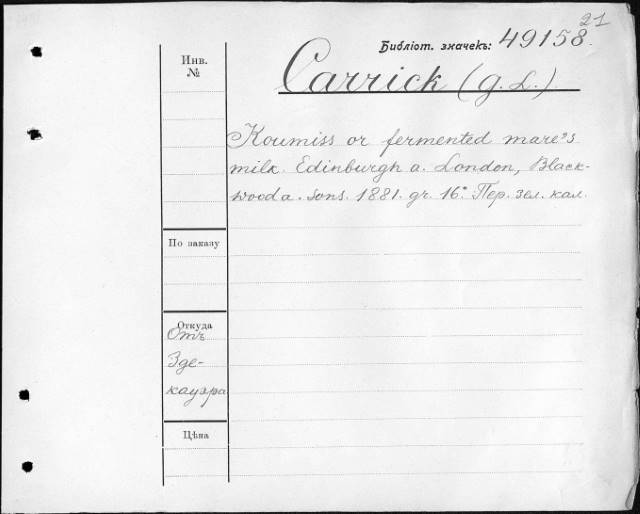 21
Библіот. значекъ: 49158.
Инв.
№
Carrick (G. L.)
Koumiss or fermented mare's
milk. Edinburgh a. London, Black-
wood a. Sons. 1881. gr. 16° Пер. зел. кал.
По заказу
Откуда
Отъ
Зде-
кауэра
Цѣна